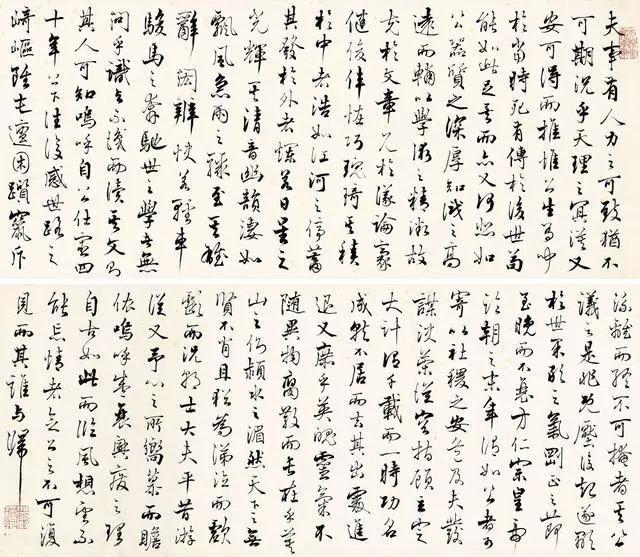 夫事有人力之可致猶不
可期況乎天理之冥漠又
安可得而推惟公生有聞
於當時死有傳於後世苟
能如此足矣而亦又何悲如
公器質之深厚知識之高
遠而輔以學術之精微故
充於文章見於議論豪
健俊偉怪巧瑰琦其積
於中者浩如江河之停蓄
其發於外者爛若日星之
光輝其清音幽韻淒如
飄風急雨之驟至其雄
辭閎辨快若輕車
駿馬之奔馳世之學者無
問乎識與不識而讀其文則
其人可知嗚呼自公仕宦四
十年上下往復感世路之
崎嶇雖屯邅困躓竄斥
流離而終不可掩者其公
議之是非既壓復起遂顯
於世果敢之氣剛正之節
至晚而不衰方仁宗皇帝
臨朝之末年謂如公者可
寄以社稷之安危及夫發
謀決策從容指顧立定
大計謂千載而一時功名
成就不居而去其出處進
退又庶乎英魄靈氣不
隨異物腐散而長在乎箕
山之側潁水之湄然天下之無
賢不肖且猶為涕泣而歔
欷而況朝士大夫平昔游
從又予心之所嚮慕而瞻
依嗚呼盛衰興廢之理
自古如此而臨風想望不
能忘情者念公之不可復
見而其誰與歸